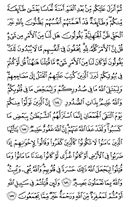 ثُمَّ أَنزَلَ عَلَيْكُم مِّنۢ بَعْدِ ٱلْغَمِّ أَمَنَةً نُّعَاسًا يَغْشَىٰ طَآئِفَةً
مِّنكُمْ وَطَآئِفَةٌ قَدْ أَهَمَّتْهُمْ أَنفُسُهُمْ يَظُنُّونَ بِٱللَّهِ غَيْرَ
ٱلْحَقِّ ظَنَّ ٱلْجَٰهِلِيَّةِ يَقُولُونَ هَل لَّنَا مِنَ ٱلْأَمْرِ مِن شَىْءٍ
قُلْ إِنَّ ٱلْأَمْرَ كُلَّهُۥ لِلَّهِ يُخْفُونَ فِىٓ أَنفُسِهِم مَّا لَا يُبْدُونَ لَكَ
يَقُولُونَ لَوْ كَانَ لَنَا مِنَ ٱلْأَمْرِ شَىْءٌ مَّا قُتِلْنَا هَٰهُنَا قُل لَّوْ كُنتُمْ
فِى بُيُوتِكُمْ لَبَرَزَ ٱلَّذِينَ كُتِبَ عَلَيْهِمُ ٱلْقَتْلُ إِلَىٰ مَضَاجِعِهِمْ
وَلِيَبْتَلِىَ ٱللَّهُ مَا فِى صُدُورِكُمْ وَلِيُمَحِّصَ مَا فِى قُلُوبِكُمْ
وَٱللَّهُ عَلِيمٌۢ بِذَاتِ ٱلصُّدُورِ ١٥٤ إِنَّ ٱلَّذِينَ تَوَلَّوْا۟ مِنكُمْ يَوْمَ ٱلْتَقَى
ٱلْجَمْعَانِ إِنَّمَا ٱسْتَزَلَّهُمُ ٱلشَّيْطَٰنُ بِبَعْضِ مَا كَسَبُوا۟
وَلَقَدْ عَفَا ٱللَّهُ عَنْهُمْ إِنَّ ٱللَّهَ غَفُورٌ حَلِيمٌ ١٥٥ يَٰٓأَيُّهَا
ٱلَّذِينَ ءَامَنُوا۟ لَا تَكُونُوا۟ كَٱلَّذِينَ كَفَرُوا۟ وَقَالُوا۟ لِإِخْوَٰنِهِمْ
إِذَا ضَرَبُوا۟ فِى ٱلْأَرْضِ أَوْ كَانُوا۟ غُزًّى لَّوْ كَانُوا۟ عِندَنَا
مَا مَاتُوا۟ وَمَا قُتِلُوا۟ لِيَجْعَلَ ٱللَّهُ ذَٰلِكَ حَسْرَةً فِى قُلُوبِهِمْ
وَٱللَّهُ يُحْىِۦ وَيُمِيتُ وَٱللَّهُ بِمَا تَعْمَلُونَ بَصِيرٌ ١٥٦ وَلَئِن قُتِلْتُمْ
فِى سَبِيلِ ٱللَّهِ أَوْ مُتُّمْ لَمَغْفِرَةٌ مِّنَ ٱللَّهِ وَرَحْمَةٌ خَيْرٌ مِّمَّا يَجْمَعُونَ ١٥٧